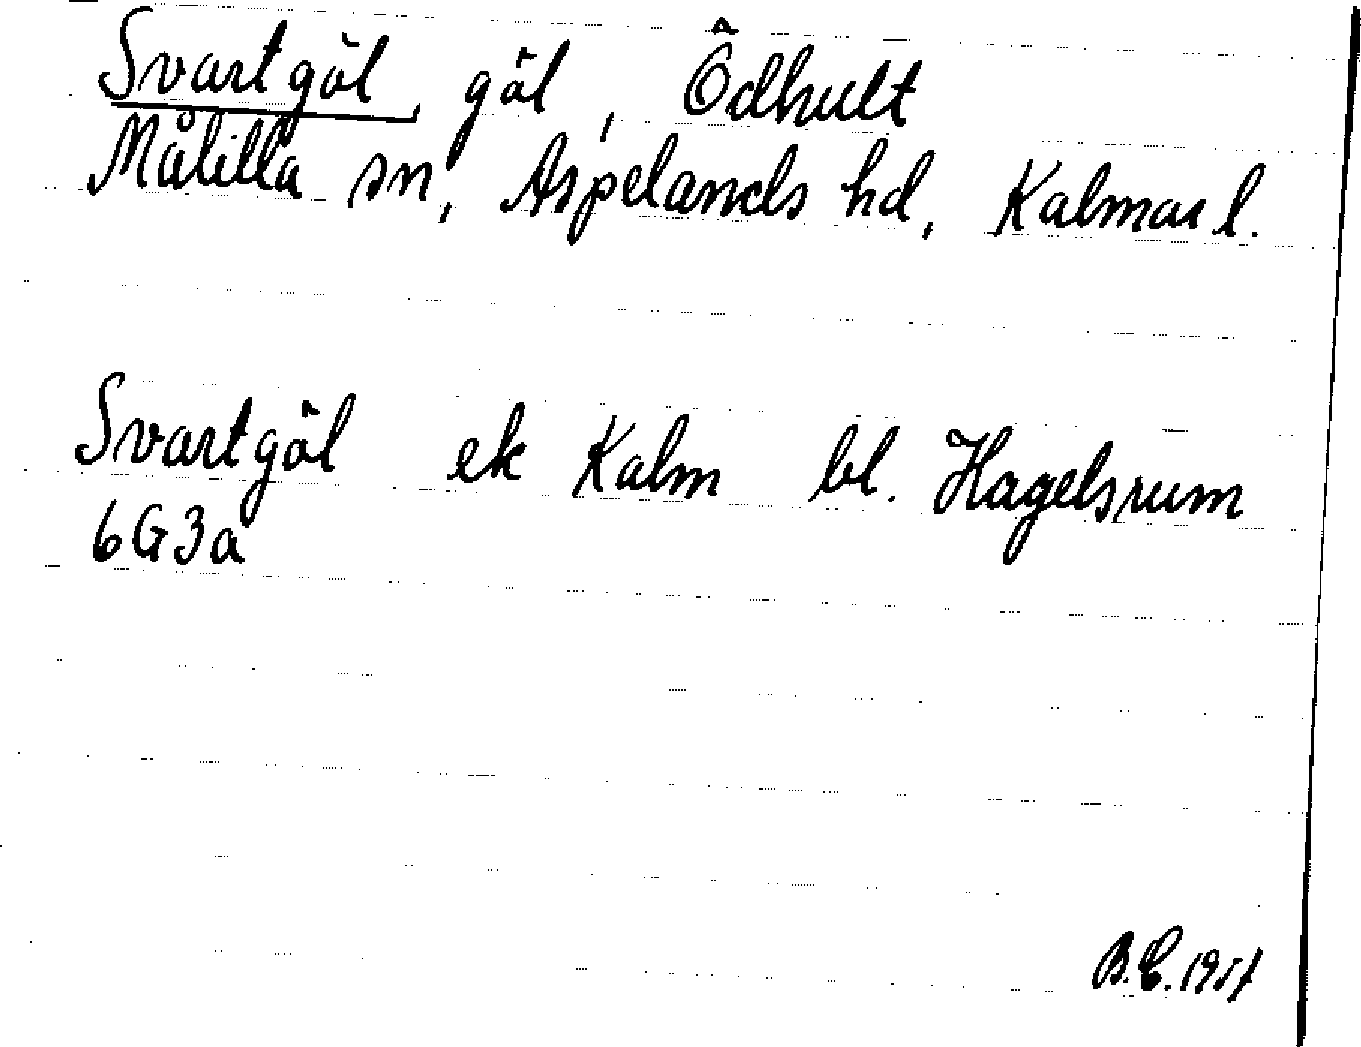 Svartgöl, göl, Ödhult
Målilla sn, Aspelands hd, Kalmar l.
Svartgöl ek Kalm bl. Hagelsrum
6G3a
B.E. 1957